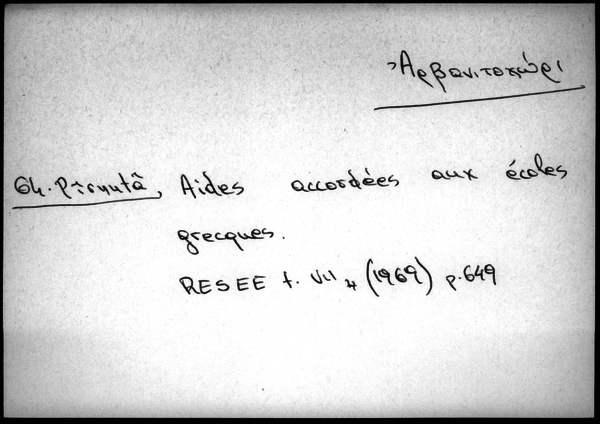 Ἀρβανιτοχώρι
Gh. Pîrnutâ, Aides accordées aux écoles
grecques.
RESEE t. VII 4 (1969) p.649